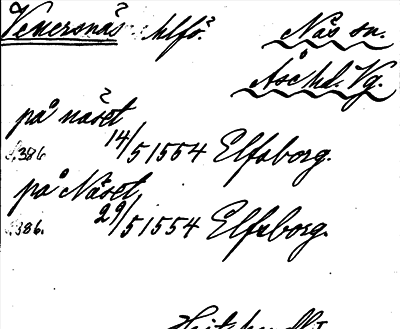 Venersnäs hlfö. Nås sn.
Åse hd. Vg.
på näset
s. 386 14/5 1554 Elfsborg.
på Näset
s. 386. 29/5 1554 Elfsborg.